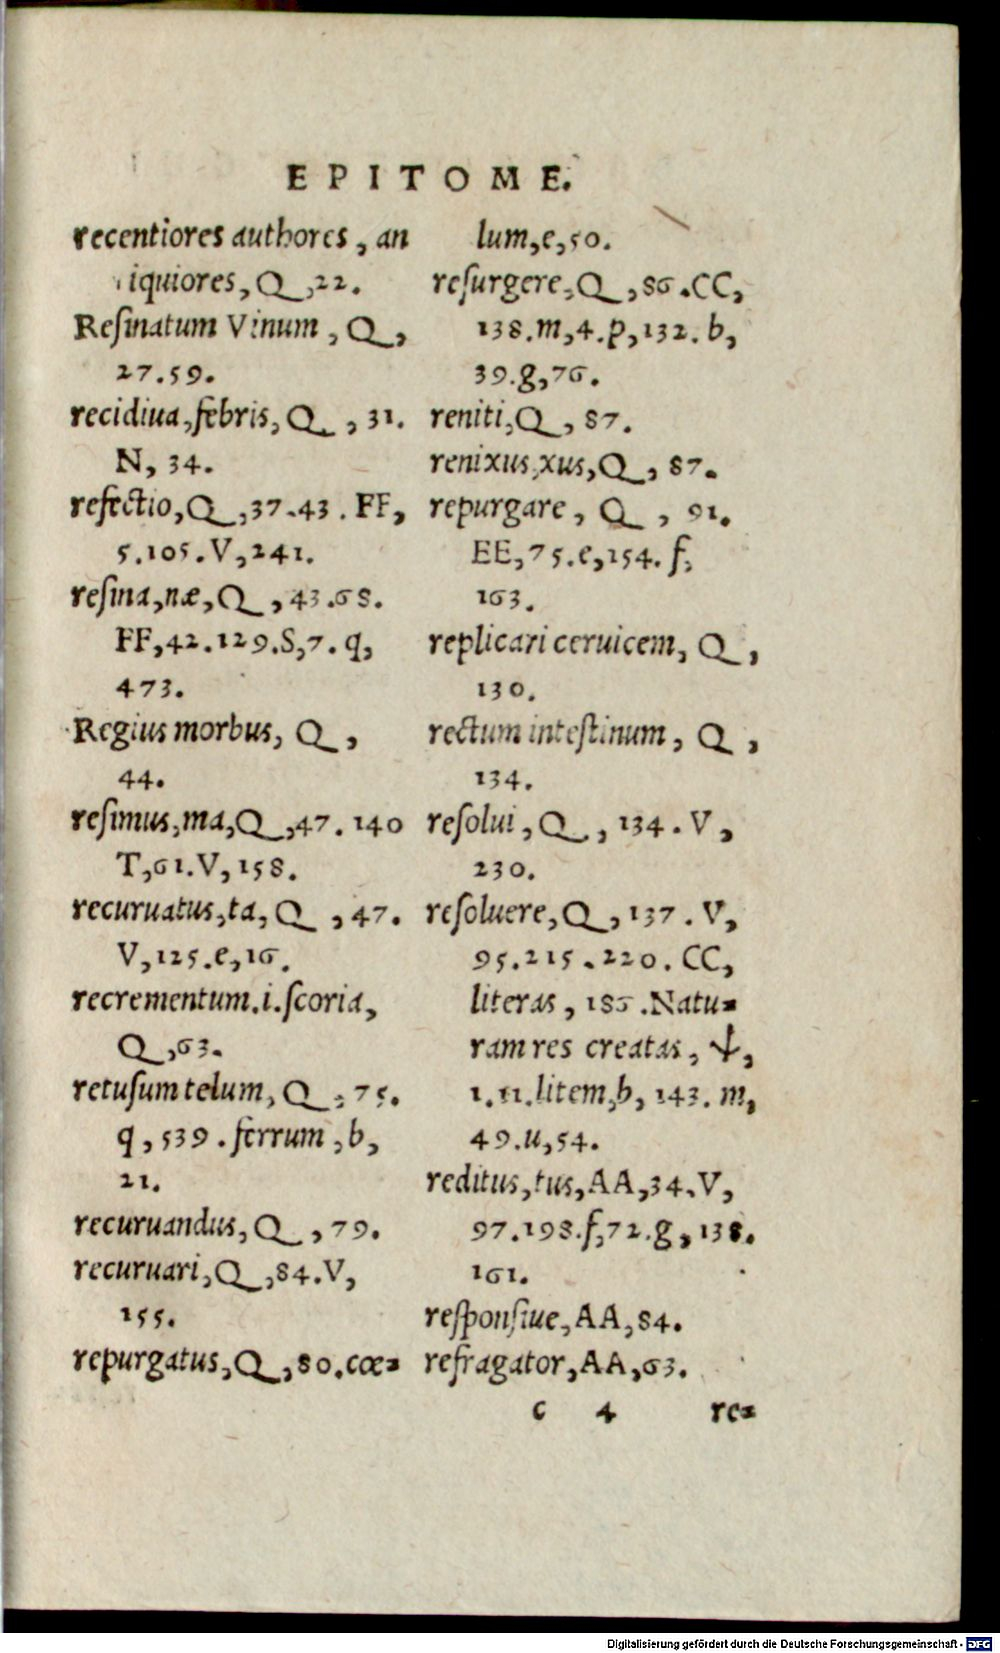 EPITOME.
recentiores authores, an
iquiores, Q, 22.
Resinatum Vinum, Q,
27.59.
recidiua, febris, Q, 31.
N, 34.
refectio, Q, 37.43. FF,
5.105. V, 241.
resina, næ, Q, 43.68.
FF, 42.129. S, 7. q,
473.
Regius morbus, Q,
44.
resimus, ma, Q, 47.140
T, 61. V, 158.
recuruatus, ta, Q, 47.
V, 125. e, 16.
recrementum. i. scoria,
Q, 63.
retusum telum, Q, 75.
q, 539. ferrum, b,
21.
recuruandus, Q, 79.
recuruari, Q, 84. V,
155.
repurgatus, Q, 80. cœ=
lum, e, 50.
resurgere, Q, 86. CC,
138. m, 4. p, 132. b,
39. g, 76.
reniti, Q, 87.
renixus, xus, Q, 87.
repurgare, Q, 91.
EE, 75. e, 154. f,
163.
replicari ceruicem, Q,
130.
rectum intestinum, Q,
134.
resolui, Q, 134. V,
230.
resoluere, Q, 137. V,
95.215.220. CC,
literas, 186. Natu=
ram res creatas, ψ,
1.11. litem, b, 143. m,
49. u, 54.
reditus, tus, AA, 34. V,
97.198. f, 72. g, 138.
161.
responsiue, AA, 84.
refragator, AA, 63.
c 4 re=
Digitalisierung gefördert durch die Deutsche Forschungsgemeinschaft - DFG